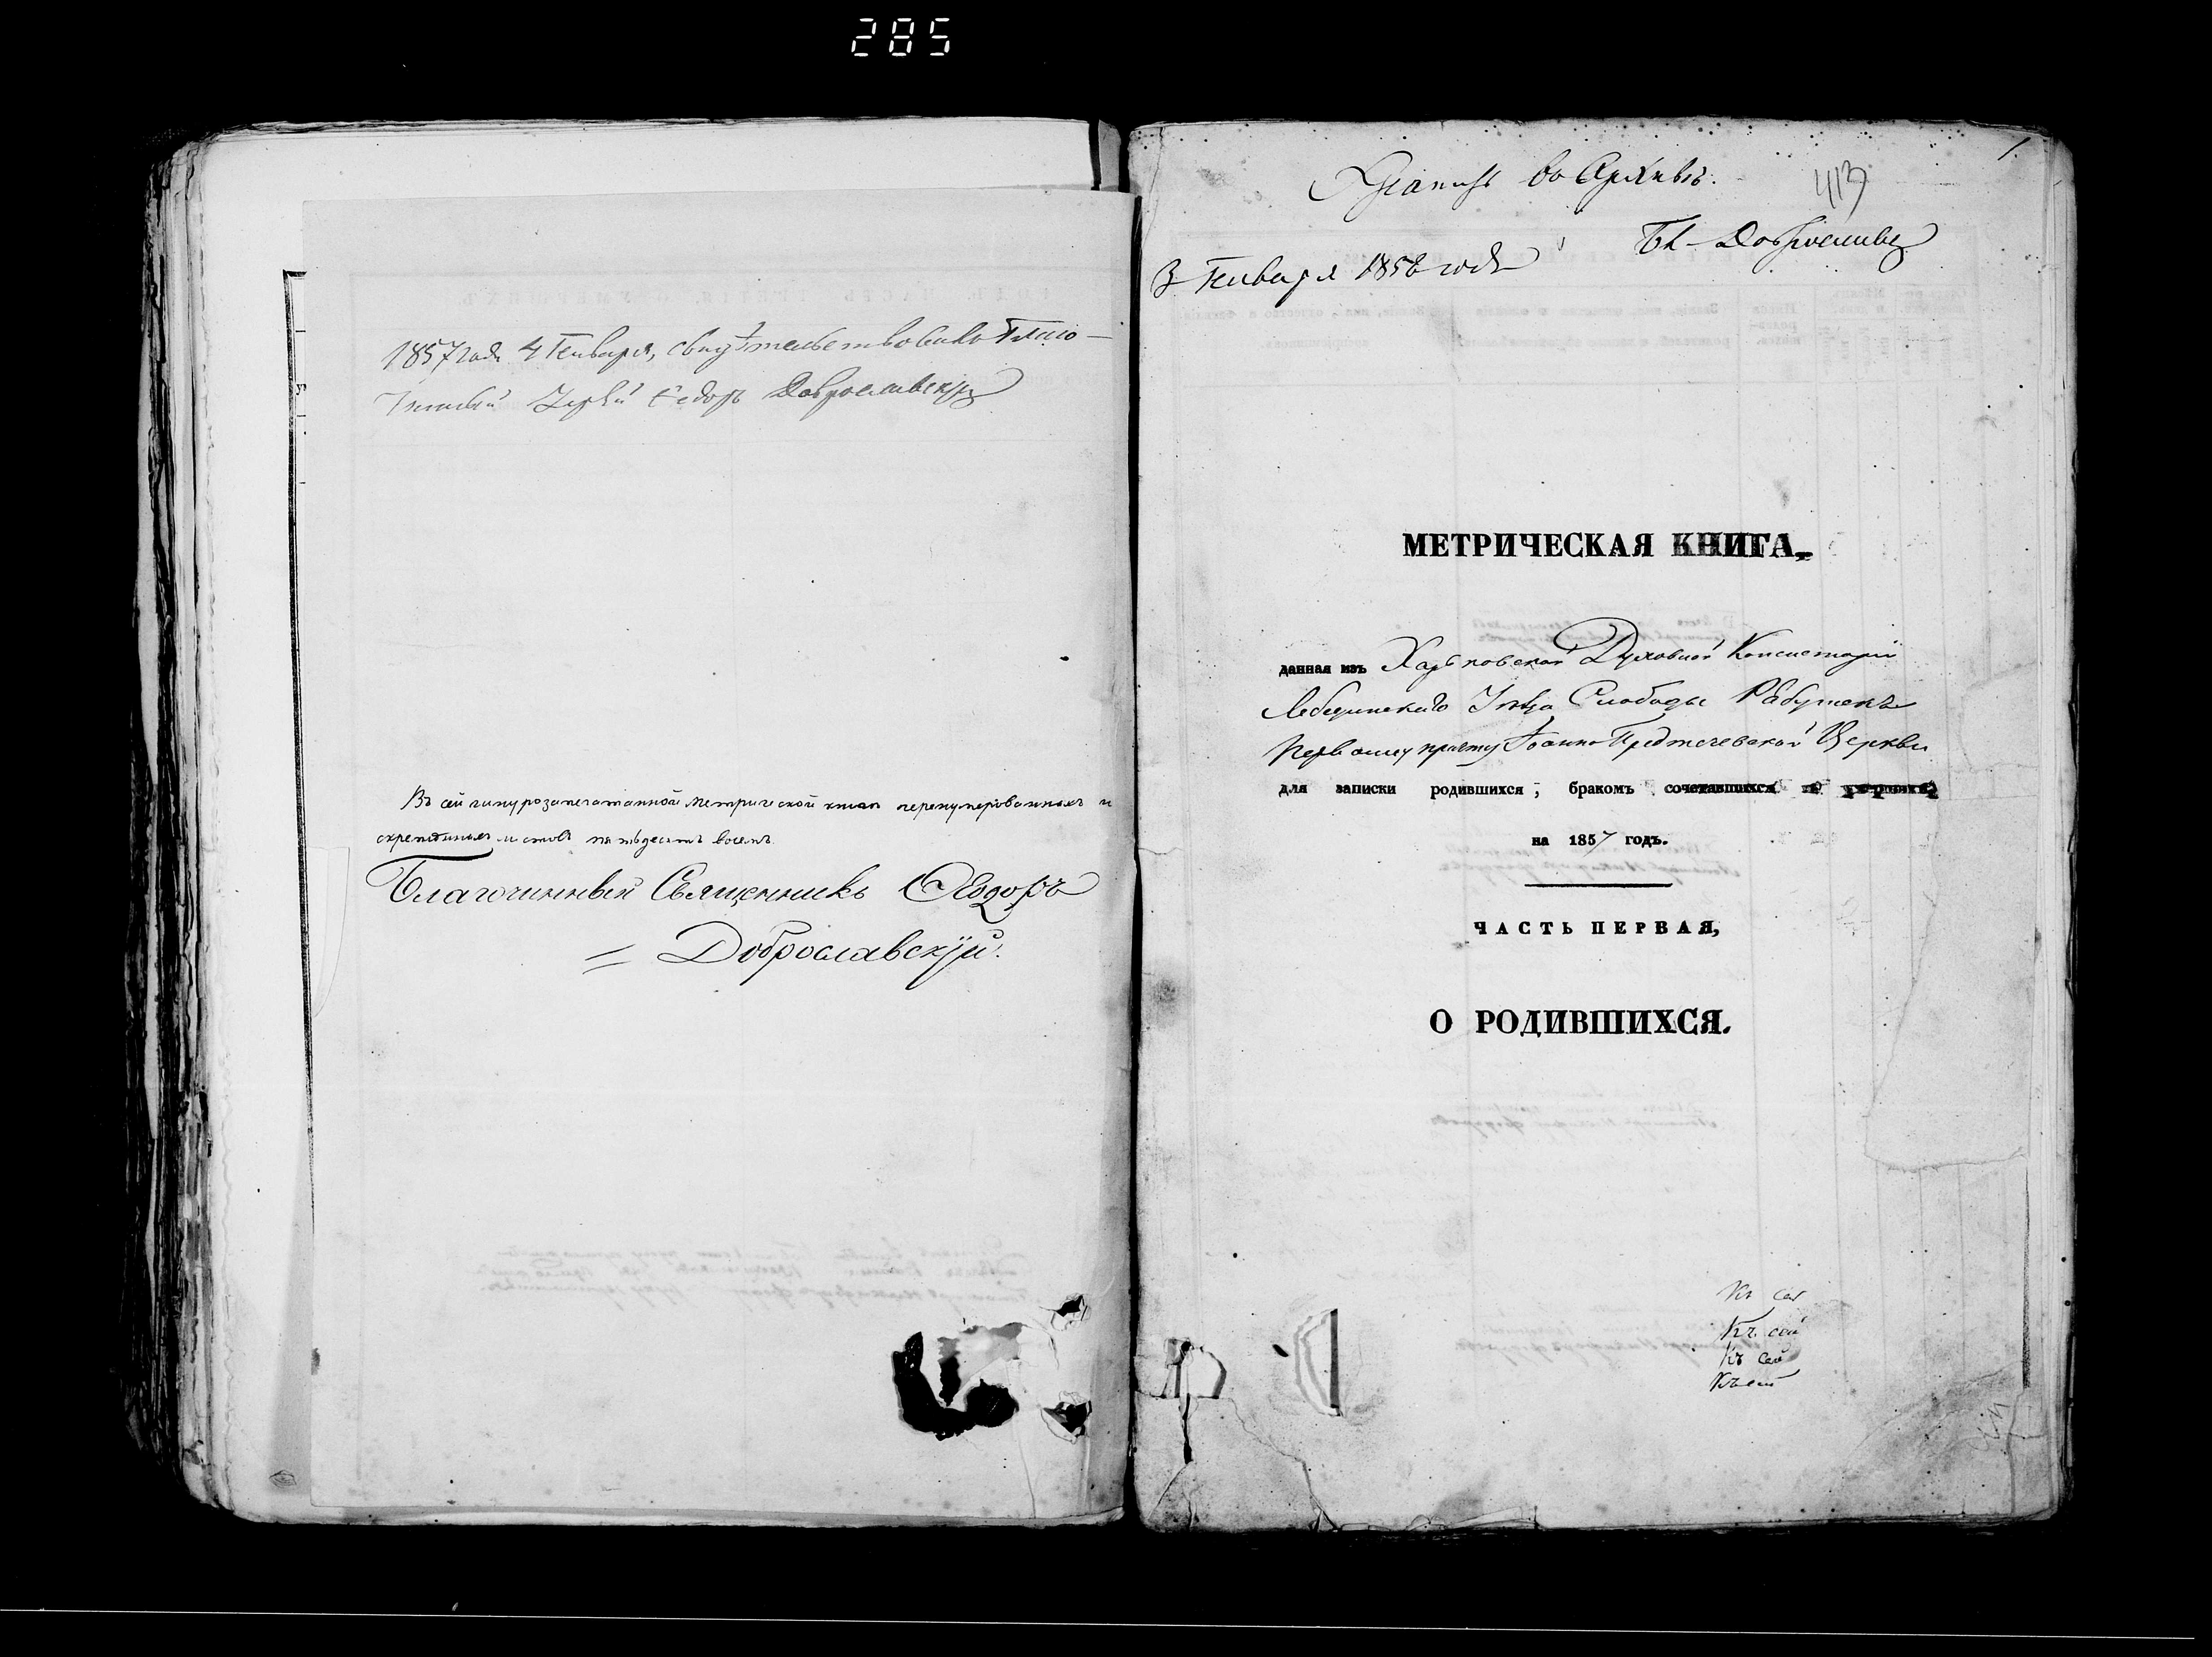 285
1857 года 4 Генваря, свидѣтельствовалъ Благо-
чинный Іерей Ѳедоръ Доброславскій
Въ сей шнурозапечатанной метрической книгѣ перенумерованныхъ и
скрепленныхъ листовъ пятьдесятъ восемь.
Благочинный Священникъ Ѳеодоръ
Доброславскій.
1.
Хранить въ Архивѣ.
413
Бл. Доброславскій
3 Генваря 1858 года
МЕТРИЧЕСКАЯ КНИГА,
данная изъ Харьковской Духовной Консисторіи
Лебединскаго Уѣзда Слободы Рабушекъ
Первому причту Іоанно Предтечевской Церкви
для записки родившихся, бракомъ сочетавшихся и умершихъ
на 1857 годъ.
ЧАСТЬ ПЕРВАЯ,
О РОДИВШИХСЯ.
Къ сей
Къ сей
Къ сей
Къ сей